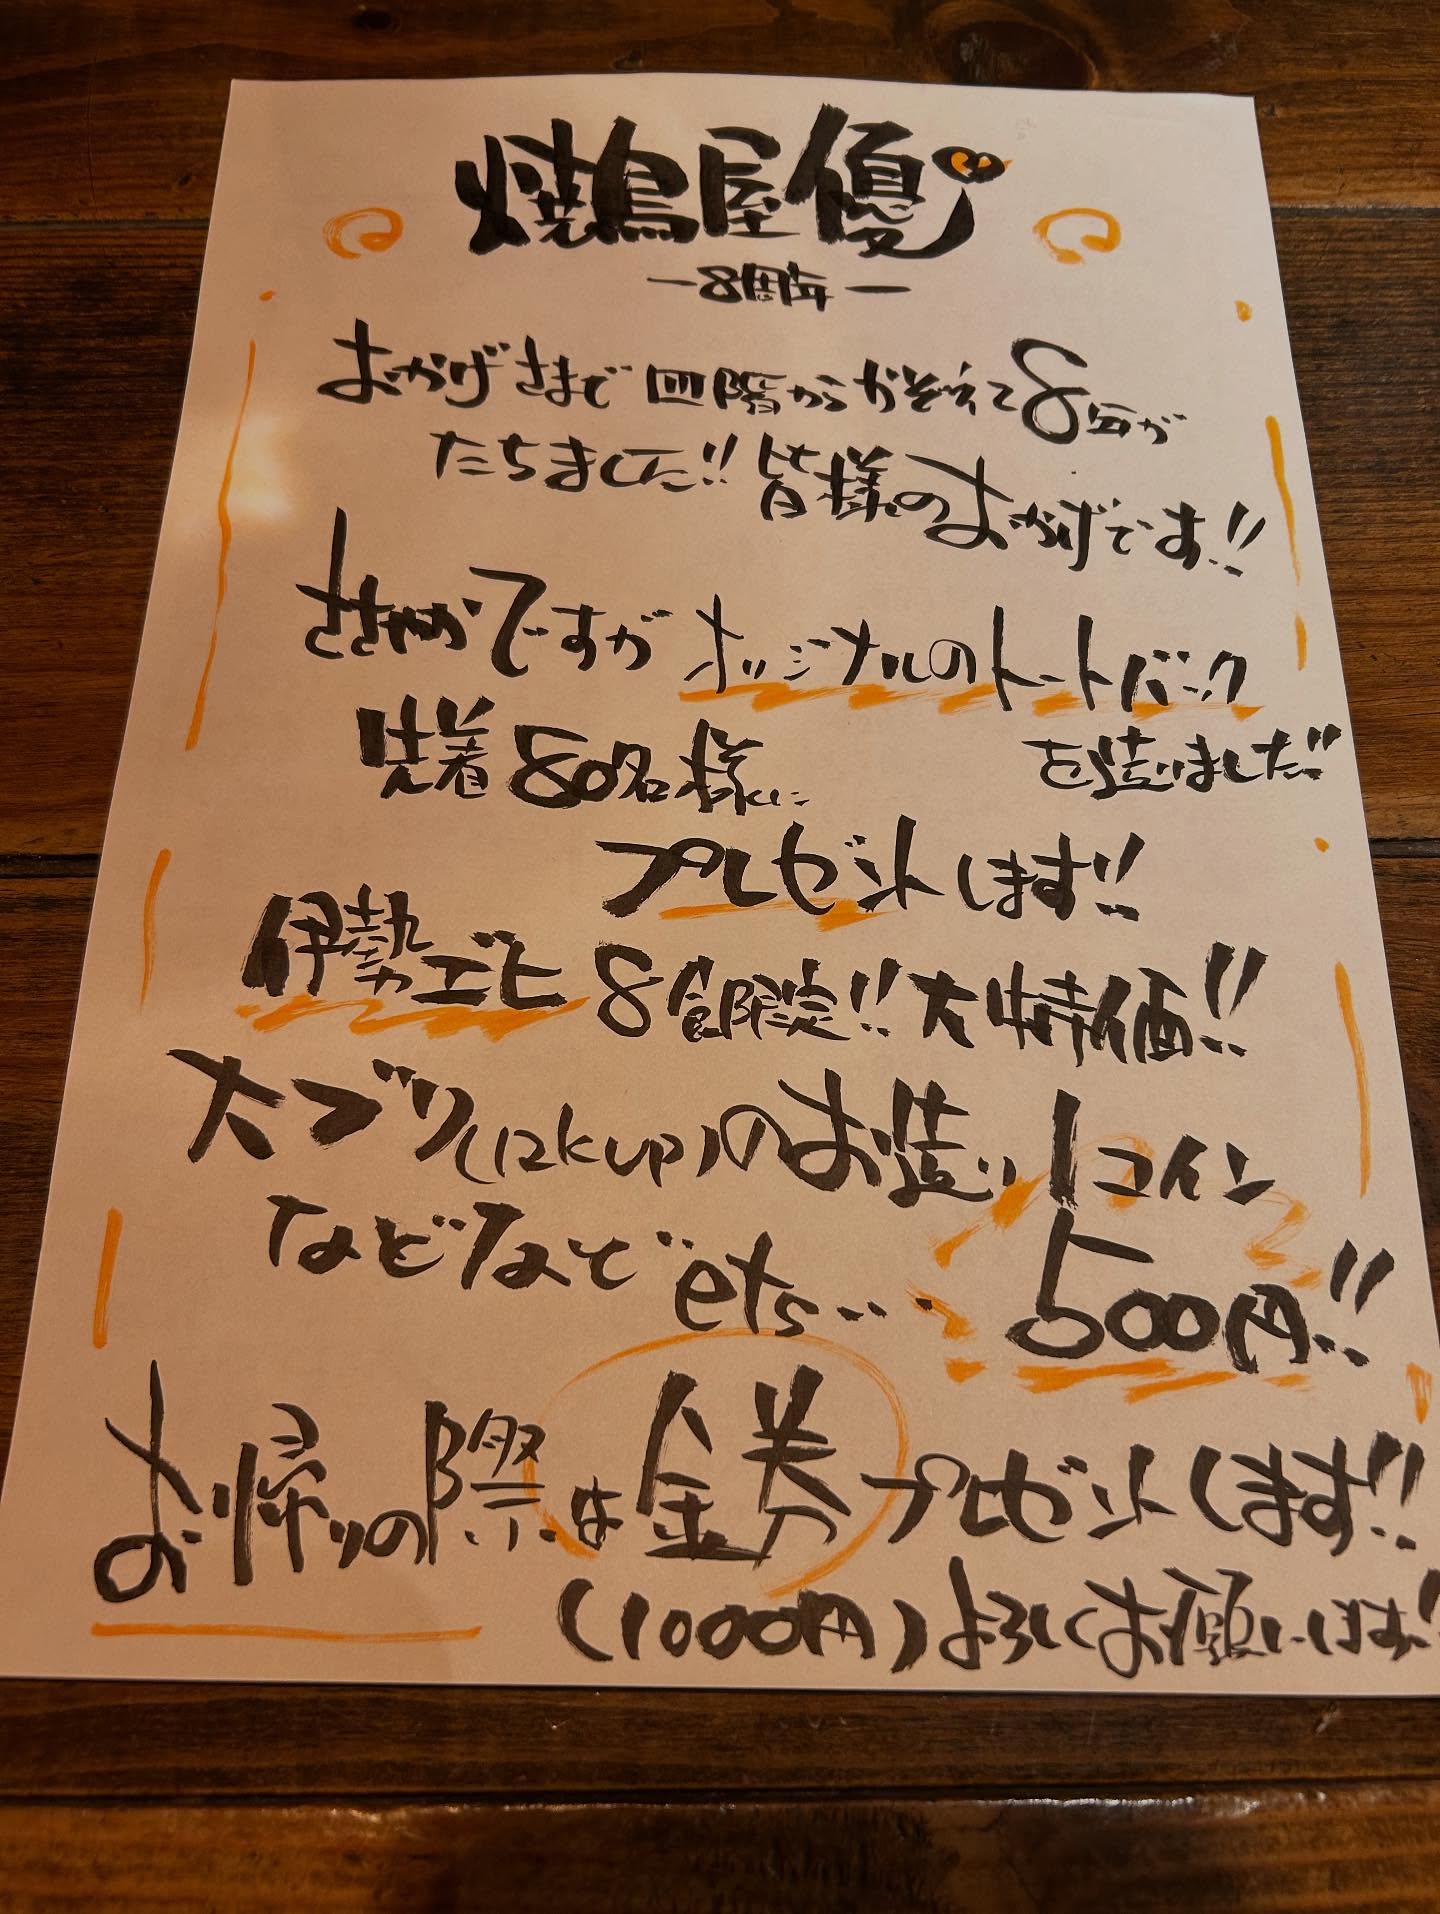 焼鳥屋優
-8周年-
おかげさまで四階からかぞえて8年が
たちました!!皆様のおかげです!!
ささやかですがオリジナルのトートバック
先着80名様に を造りました!!
プレゼントします!!
伊勢エビ8食限定!!大特価!!
大ブリ(12kup)のお造り1コイン
などなどets... 500円!!
お帰りの際は金券プレゼントします!!
(1000円)よろしくお願いします!!